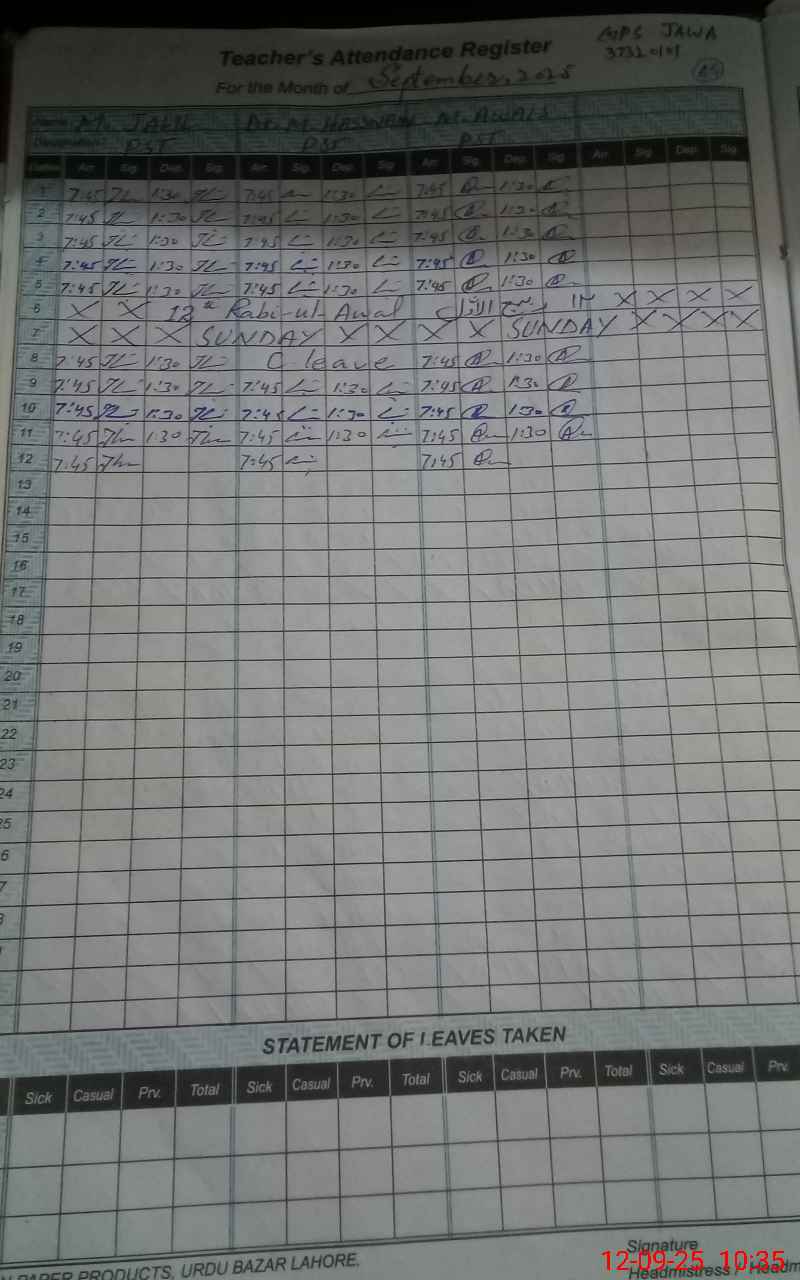 GPS JAWA
Teacher's Attendance Register 37320101
For the Month of September, 2025
Name M. JALIL M. AWAIS
Designation PST PST PST
Dates Arr. Sig. Dep. Sig. Arr. Sig. Dep. Sig. Arr. Sig. Dep. Sig. Arr. Sig. Dep. Sig.
1 7:45 1:30 7:45 1:30 7:45 1:30
2 7:45 1:30 7:45 1:30 7:45 1:30
3 7:45 1:30 7:45 1:30 7:45 1:30
4 7:45 1:30 7:45 1:30 7:45 1:30
5 7:45 1:30 7:45 1:30 7:45 1:30
6 X X 12th Rabi-ul-Awal ربیع الاوّل ۱۲ X X X X
7 X X X SUNDAY X X X X SUNDAY X X X X
8 7:45 1:30 C leave 7:45 1:30
9 7:45 1:30 7:45 1:30 7:45 1:30
10 7:45 1:30 7:45 1:30 7:45 1:30
11 7:45 1:30 7:45 1:30 7:45 1:30
12 7:45 7:45 7:45
13
14
15
16
17
18
19
20
21
22
23
24
5
6
7
STATEMENT OF LEAVES TAKEN
Sick Casual Prv. Total Sick Casual Prv. Total Sick Casual Prv. Total Sick Casual Prv.
PAPER PRODUCTS, URDU BAZAR LAHORE.
Signature
Headmistress / Headm
12-09-25 10:35